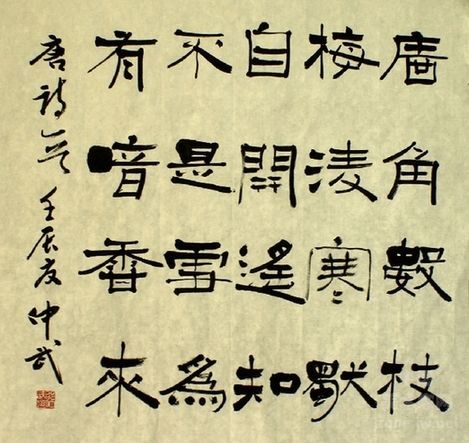 廧角數枝
梅淩寒獨
自開遙知
不是雪為
有暗香來
唐詩一首 壬辰 仲武